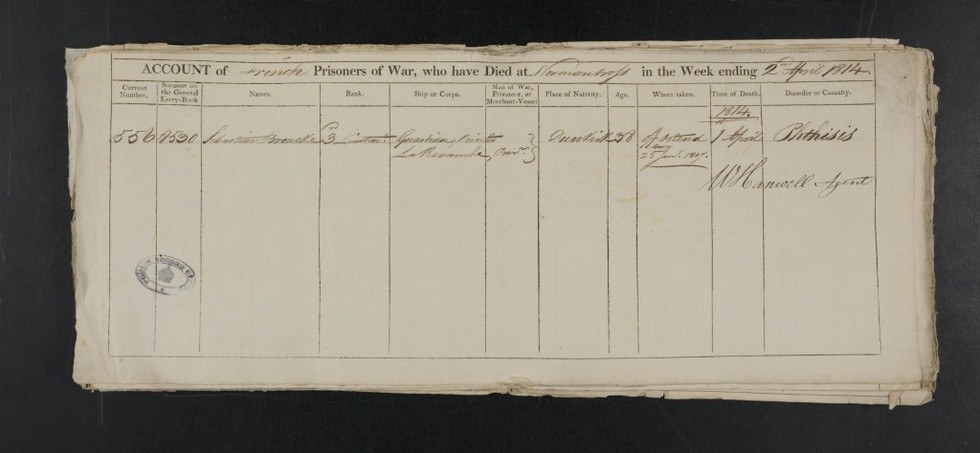 ACCOUNT of French Prisoners of War, who have Died at Normancross in the Week ending 2d April 1814
Current Number. Number on the General Entry-Book Names. Rank. Ship or Corps. Man of War, Privateer, or Merchant-Vessel Place of Nativity. Age. Where taken. Time of Death. Disorder or Casualty.
1814
556 Lieutent. Dunkirk 38 off Ostend 1 April Phthisis
La Revanche
25 Jany. 1807.
W Hanwell Agent